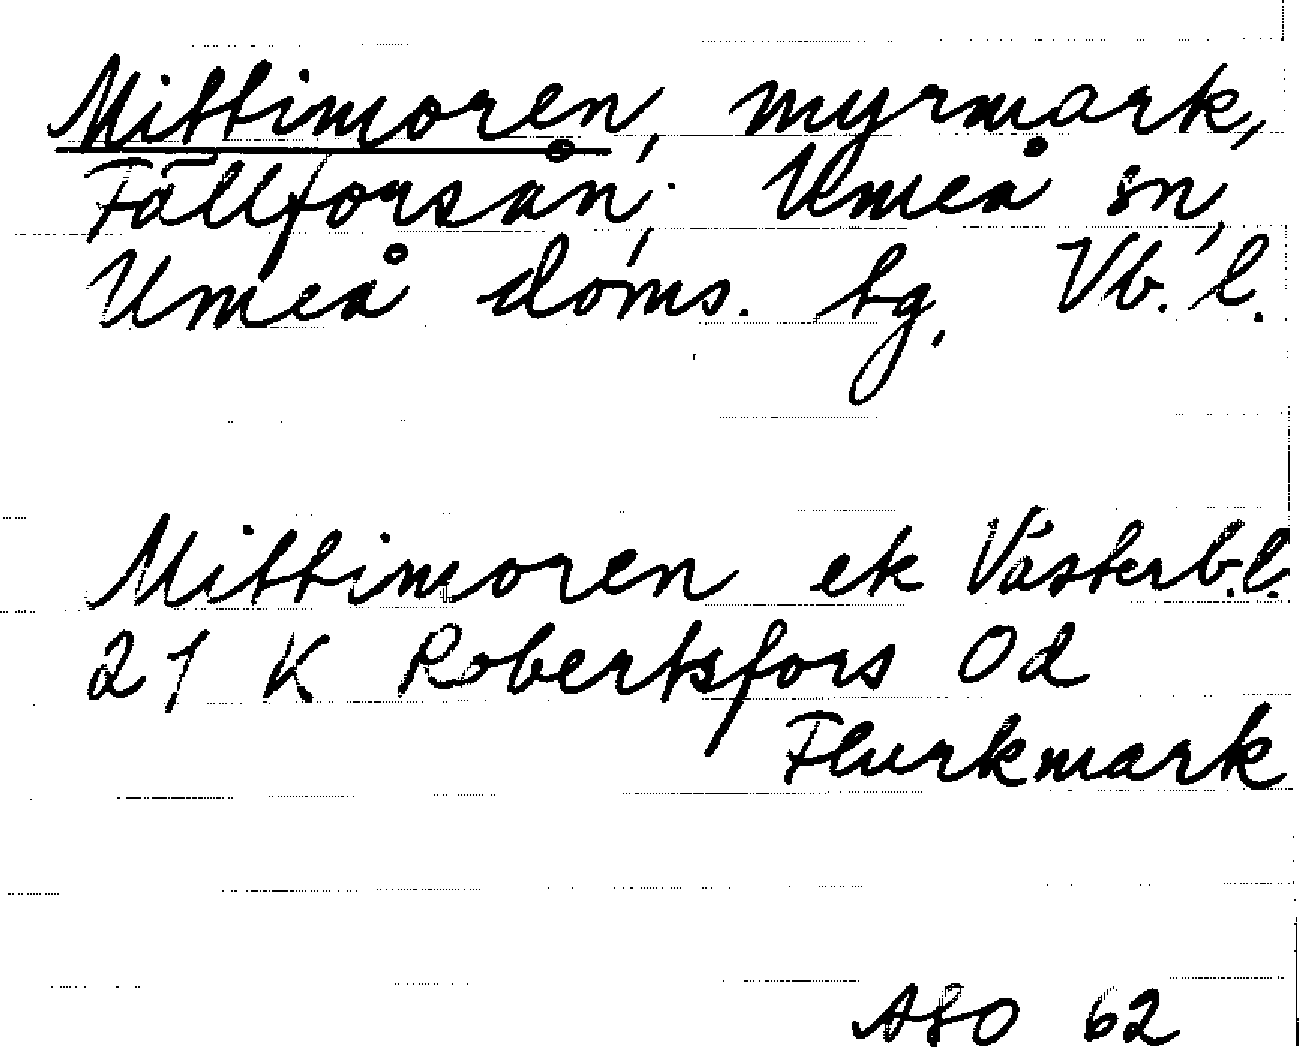 Mittimoren, myrmark,
Fällforsån, Umeå sn,
Umeå doms. tg, Vb. l.
Mittimoren ek Västerb.l.
21 K Robertsfors 0d
Flurkmark
ASO 62